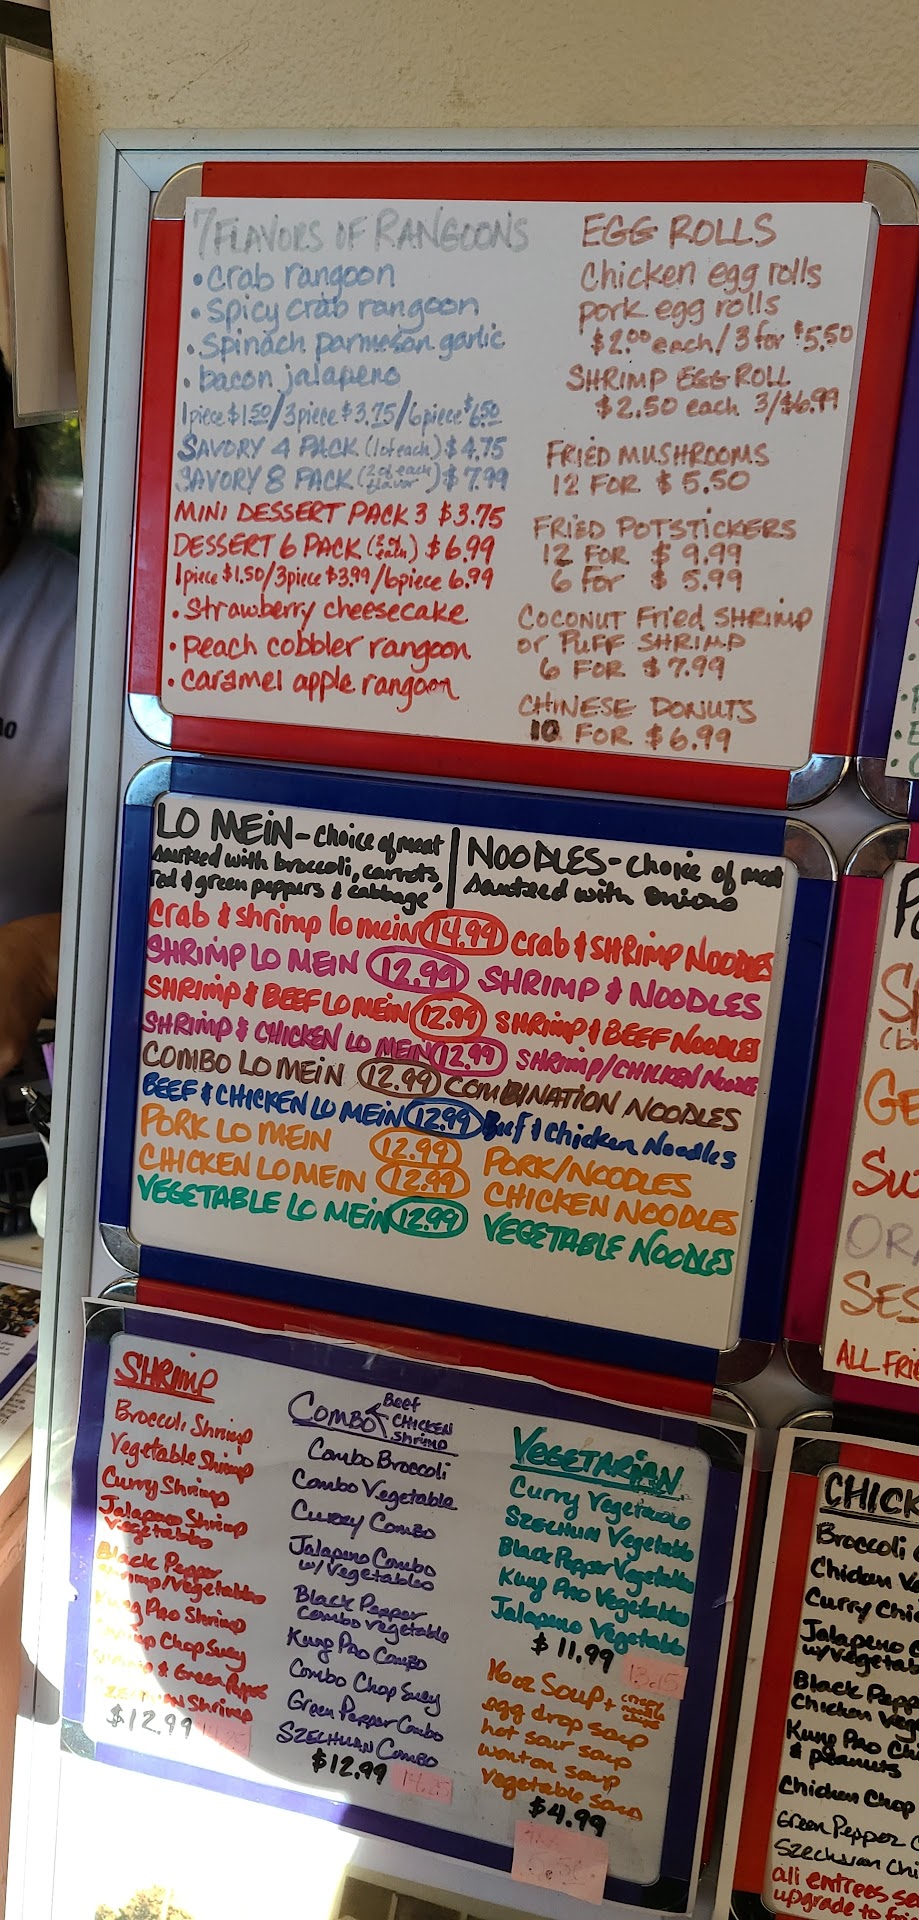 7 FLAVORS OF RANGOONS
• Crab rangoon
• Spicy crab rangoon
• Spinach parmesan garlic
• bacon jalapeno
1piece $1.50/3piece $3.75/6piece $6.50
SAVORY 4 PACK (1 of each) $4.75
SAVORY 8 PACK (2 of each flavor) $7.99
MINI DESSERT PACK 3 $3.75
DESSERT 6 PACK (2 of each) $6.99
1piece $1.50/3piece $3.99/6piece 6.99
• Strawberry cheesecake
• peach cobbler rangoon
• caramel apple rangoon
EGG ROLLS
Chicken egg rolls
pork egg rolls
$2.00 each/3 for $5.50
SHRIMP EGG ROLL
$2.50 each 3/$6.99
FRIED MUSHROOMS
12 FOR $5.50
FRIED POTSTICKERS
12 FOR $9.99
6 For $5.99
COCONUT Fried SHRIMP
or PUFF SHRIMP
6 FOR $7.99
CHINESE DONUTS
10 FOR $6.99
LO MEIN - Choice of meat
sauteed with broccoli, carrots,
red & green peppers & cabbage
NOODLES - Choice of meat
sauteed with onions
Crab & shrimp lo mein 14.99 Crab & SHRIMP NOODLES
SHRIMP LO MEIN 12.99 SHRIMP & NOODLES
SHRIMP & BEEF LO MEIN 12.99 SHRIMP & BEEF NOODLES
SHRIMP & CHICKEN LO MEIN 12.99 SHRIMP/CHICKEN NOODLE
COMBO LO MEIN 12.99 COMBINATION NOODLES
BEEF & CHICKEN LO MEIN 12.99 Beef & Chicken Noodles
PORK LO MEIN 12.99 PORK/NOODLES
CHICKEN LO MEIN 12.99 CHICKEN NOODLES
VEGETABLE LO MEIN 12.99 VEGETABLE NOODLES
SHRIMP
Broccoli Shrimp
Vegetable Shrimp
Curry Shrimp
Jalapeno Shrimp
Vegetables
Black Pepper
Shrimp/Vegetables
Kung Pao Shrimp
Shrimp Chop Suey
Shrimp & Green Pepper
SZECHUAN Shrimp
$12.99 14.25
COMBO Beef
CHICKEN
Shrimp
Combo Broccoli
Combo Vegetable
Curry Combo
Jalapeno Combo
w/Vegetables
Black Pepper
Combo Vegetable
Kung Pao Combo
Combo Chop Suey
Green Pepper Combo
SZECHUAN Combo
$12.99 14.25
VEGETARIAN
Curry Vegetable
SZECHUN Vegetable
Black Pepper Vegetables
Kung Pao Vegetables
Jalapeno Vegetable
$11.99 13.15
16oz Soup + crispy
egg drop soup
hot sour soup
wonton soup
Vegetable soup
$4.99
5.50
CHICK
Broccoli
Chicken Ve
Curry Chi
Jalapeno C
w/Vegetab
Black Pepp
Chicken Veg
Kung Pao Chi
& peanuts
Chicken Chop
Green Pepper C
Szechuan Chi
all entrees se
upgrade to fri
GE
SW
OR
SES
ALL FRIE